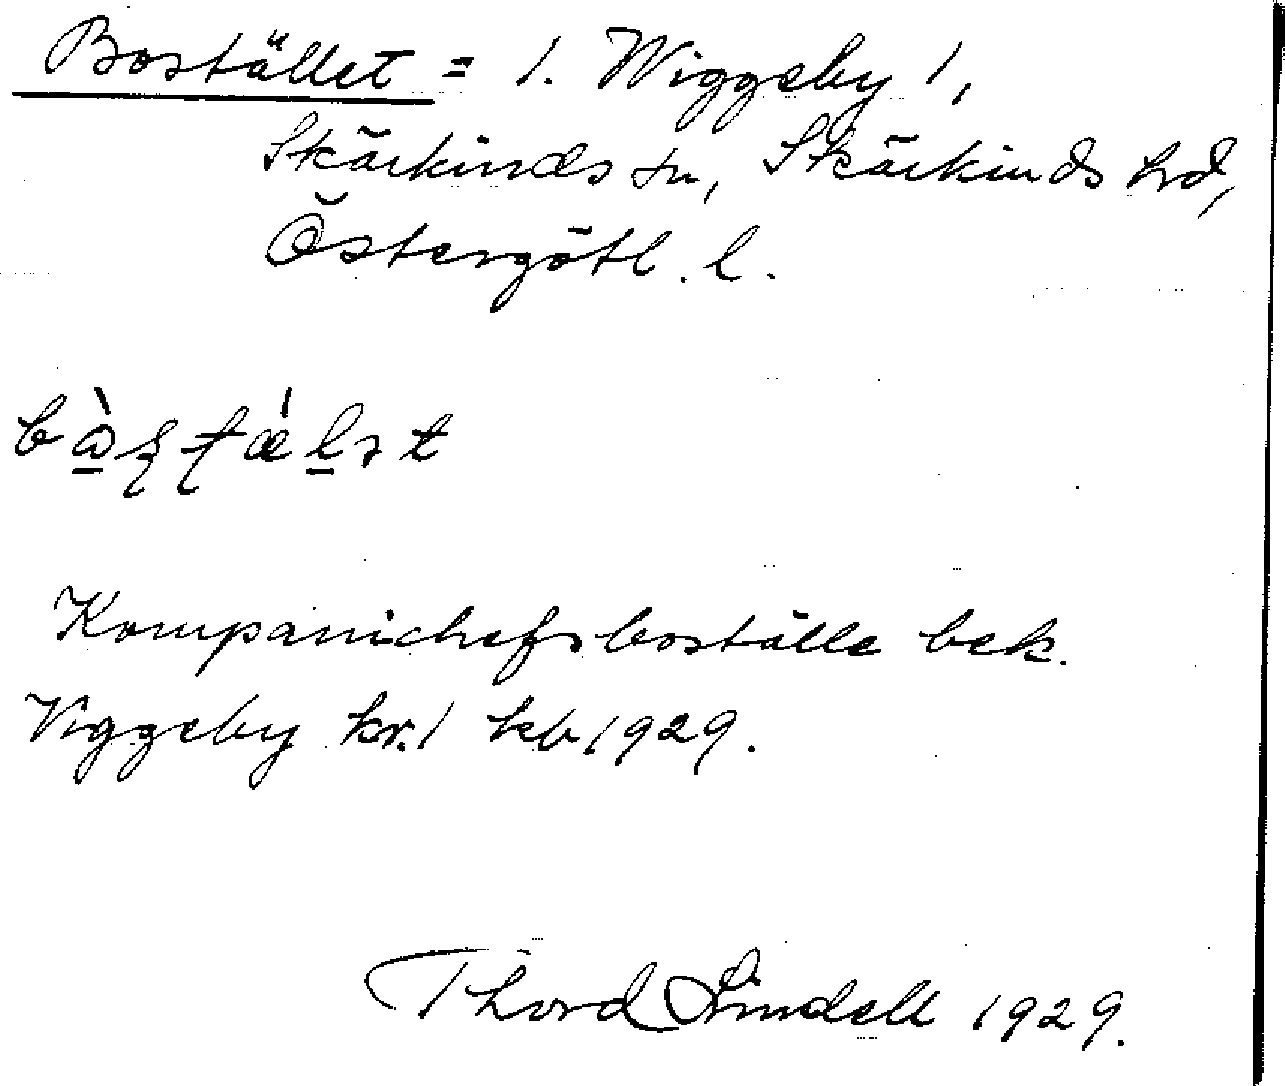 Bostället = 1. Wiggeby 1,
Skärkinds sn, Skärkinds hd,
Östergötl. l.
Kompanichefsboställe bek.
Viggeby kr. 1 kb 1929.
Thord Lindell 1929.